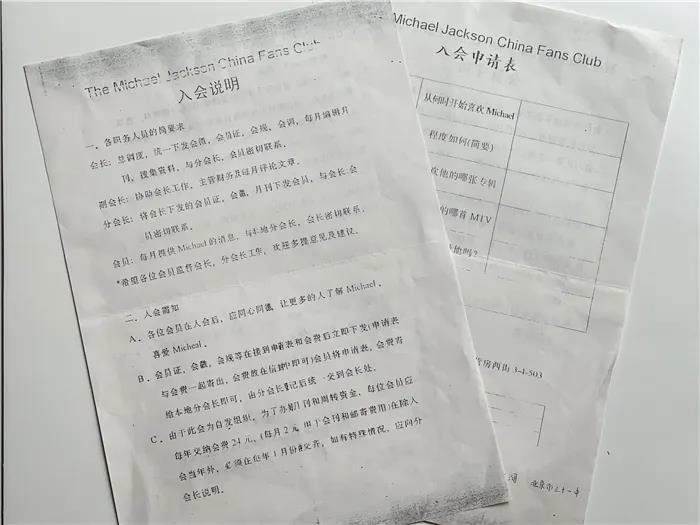 The Michael Jackson China Fans Club
入会说明
一、各职务人员的简要求
会长：总调度，统一下发会徽，会员证，会规，会训，每月编辑月
刊，搜集资料，与分会长，会员密切联系。
副会长：协助会长工作，主管财务及每月评论文章。
分会长：将会长下发的会员证，会徽，月刊下发会员，与会长，会
员密切联系。
会员：每月提供Michael的消息，与本地分会长，会长密切联系。
*希望各位会员监督会长，分会长工作，欢迎多提意见及建议。
二、入会需知
A、各位会员在入会后，应同心同德，让更多的人了解Michael，
喜爱Micheal。
B、会员证，会徽，会规等在接到申请表和会费后立即下发（申请表
与会费一起寄出，会费放在信封中即可）会员将申请表，会费寄
给本地分会长即可，由分会长登记后统一交到会长处。
C、由于此会为自发组织，为了办好月刊和周转资金，每位会员应
每年交纳会费24元，（每月2元，用于会刊和邮寄费用）在除入
会当年外，必须在每年1月份前交齐，如有特殊情况，应向分
会长说明。
Michael Jackson China Fans Club
入会申请表
从何时开始喜欢Michael
程度如何（简要）
欢他的哪张专辑
的哪首MTV
他吗？
房西街3-4-503
北京市三十一中